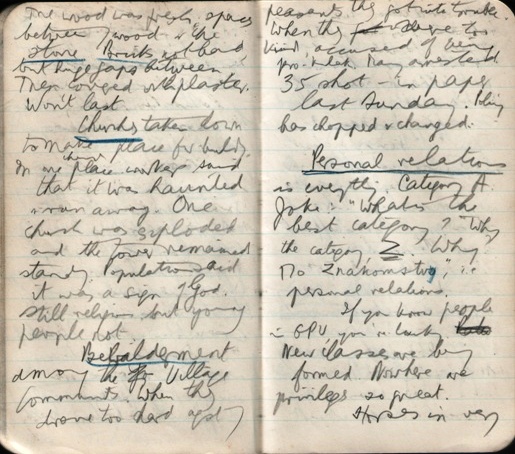 The wood was fresh, spaces
between wood & the
stone. Bricks not bad,
but huge gaps between.
Then covered with plaster.
Won't last.
Churches taken down
to make place for buildg.
In one place worker said
that it was haunted
& ran away. One
church was exploded
and the tower remained
standg. Population said
it was a sign of God.
Still religious but young
people not.
Bewilderment
among the Village
Communists. When they
drove too hard agst
peasants they got into trouble.
When they were too
kind, accused of being
pro-kulak. Many arrested
35 shot - in paper
last Sunday. Policy
has chopped & changed.
Personal relations
is everythg. Category A.
Joke: "What is the
best category?" "Why
the category Z." Why
Po Znakomstvy" i.e.
personal relations.
If you know people
in GPU you're lucky
New classes are being
formed. Nowhere are
privileges so great.
Horses in very